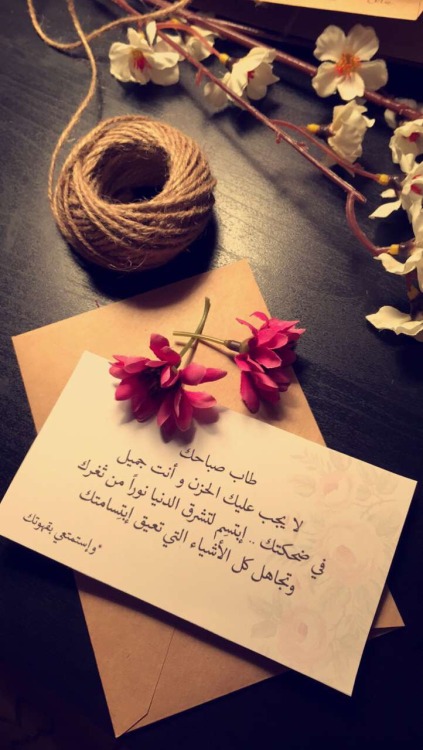 طاب صباحك
لا يجب عليك الحزن و أنت جميل
في ضحكتك .. إبتسم لتشرق الدنيا نوراً من ثغرك
وتجاهل كل الأشياء التي تعيق إبتسامتك
*وإستمتعي بقهوتك